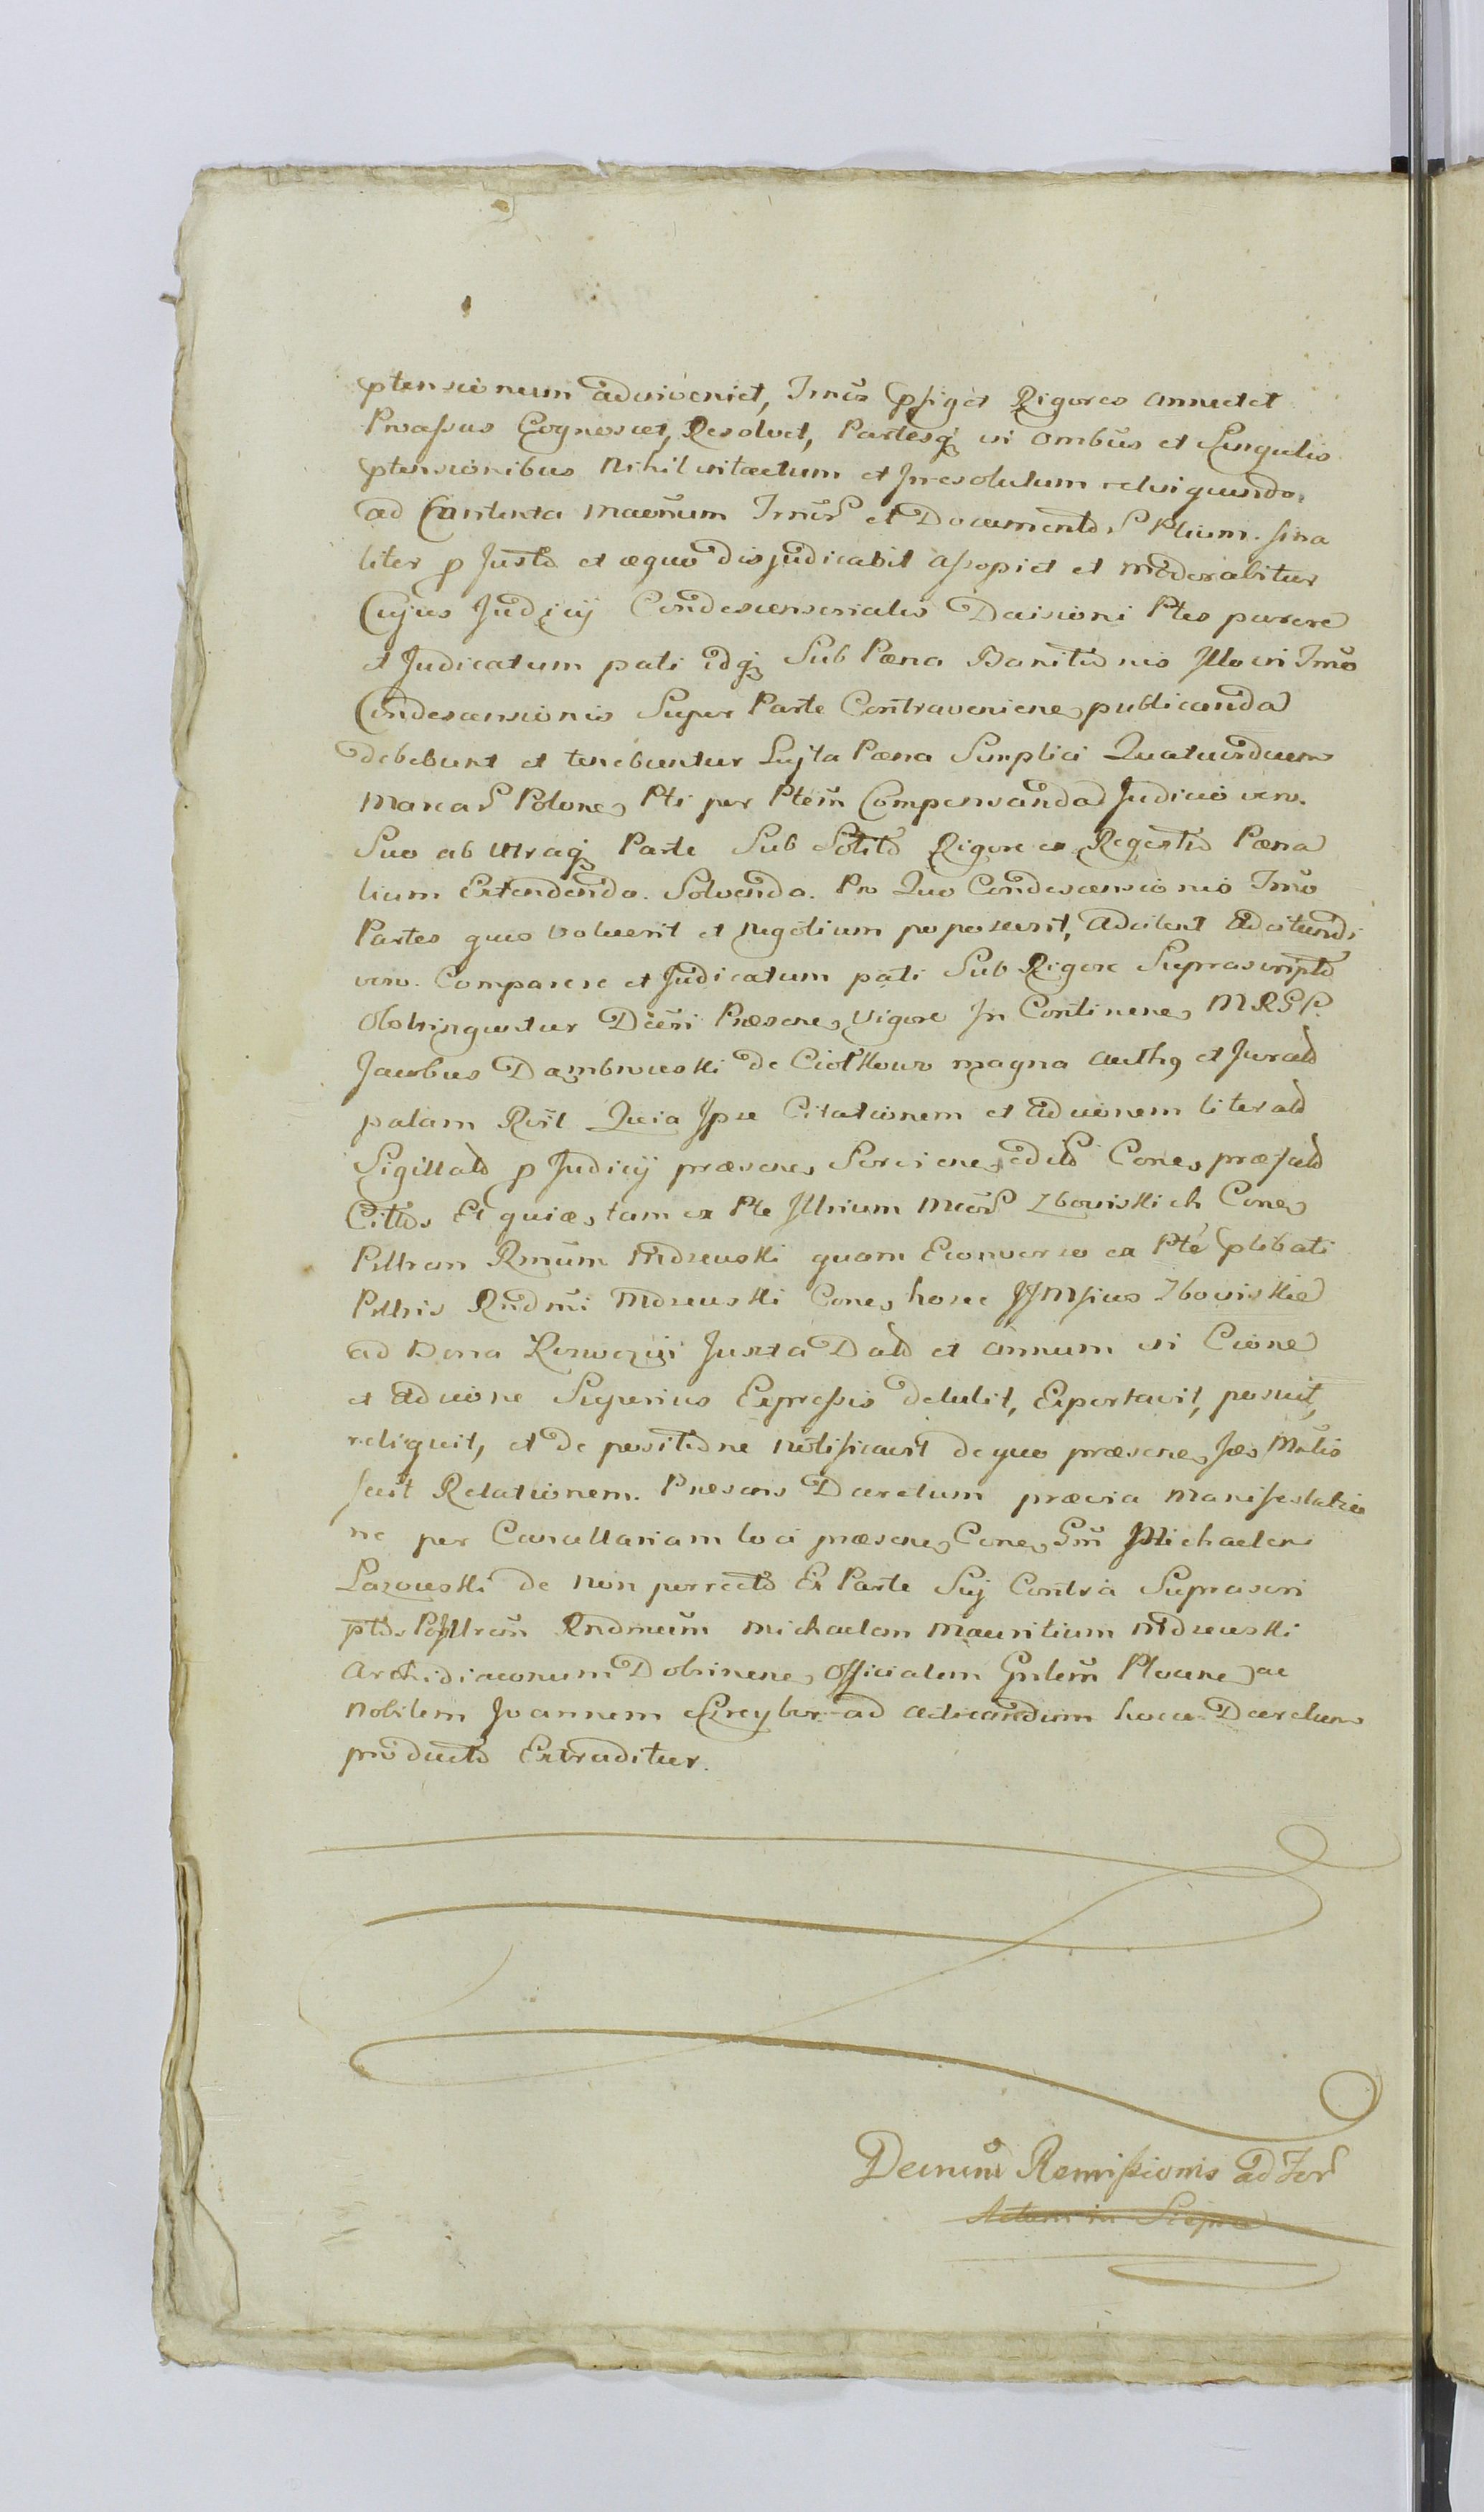 ptensionum adinveniet, Tmũs pfiget Rigores annectet
Processus Cognoscet, Resolvet, Partesq̃ in ombũs et Singulis
ptensionibus Nihil intactum et Irresolutum relinquendo,
ad Contenta Tmũs et Documentoꝝ Ptium. fina
liter p Justo et æquo disjudicabit assopiet et moderabitur
Cujus Judicij Condescensorialis Decisioni Ptes parere
et Judicatum pati idq̃ Sub Pœna Banitionis Illo in Tmõ
Condescensionis Super Parte Contraveniene publicanda
debebunt et tenebuntur Lujta Pœna Simplici Quatuordecem
Marcaꝝ Polone Pti per Ptem̃ Compensanda Judicio vero.
Suo ab Utraq̃ Parte Sub Solito Rigore ex Regestro Pœna
lium Extendendo. Solvenda. Pro Quo Condescensionis Tmõ
Partes quos voluerit et negotium poposcerit, Adcitent Adcitandi
vero. Comparere et Judicatum pati Sub Rigore Suprascripto
Obstringuntur Dcti Præsene Vigore In Continene MRSP.
Jacobus Dambrowski de Ciołkowo magna auth et Jurato
palam Rcit Quia Ipse Citationem et adcionem literato
Sigillato p Judicij præsene Serviene edito Cone præfato
Citto Et quiæ, tam ex Pte Illrium Mcoꝝ Zbowiskich Cone
Pilltrem Rmũm Mdzewski quam Econverso ex Pte plibati
Pilltris Rndmi Mdzewski Cone hosce IIMficos Zbowiskie
ad Bona Juxta Dato et annum in Cione
et Adcione Superius Expressis detulit, Exportavit, posuit,
reliquit, et de positione notificavit de quo præsene suæ Mtis
fecit Relationem. Præsens Decretum prævia Manifestatio
ne per Cancellariam loci præsene Cone Gm Michaelem
Lazowski de non porrecto Ex Parte Sui Contra Suprascri
pto Michaelem Mauritium Mdzewski
Archidiaconum Dobrinene Officialem Gnlem̃ Plocene ac
Nobilem Joannem ad edicendum hocce Decretum
producto Extraditur.
Decretum Remissionis ad For